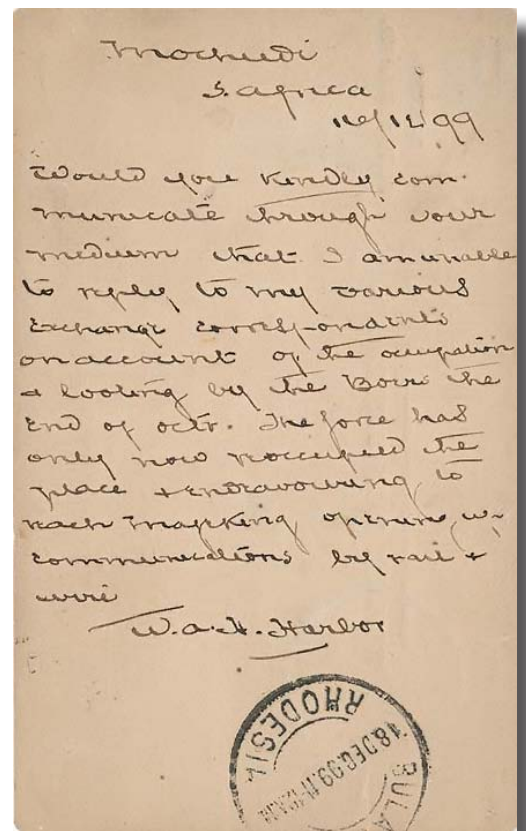 Mochudi
S. Africa
16/12/99
Would you kindly com-
municate through your
medium that I am unable
to reply to my various
exchange correspondents
on account of the occupation
& looting by the Boers the
end of octr. The force has
only now reoccupied the
place & endeavouring to
reach Mafeking, opening up
communications by rail &
wire
W.A.H. Harbor
RHODESIA
18 DEC 99
BULA